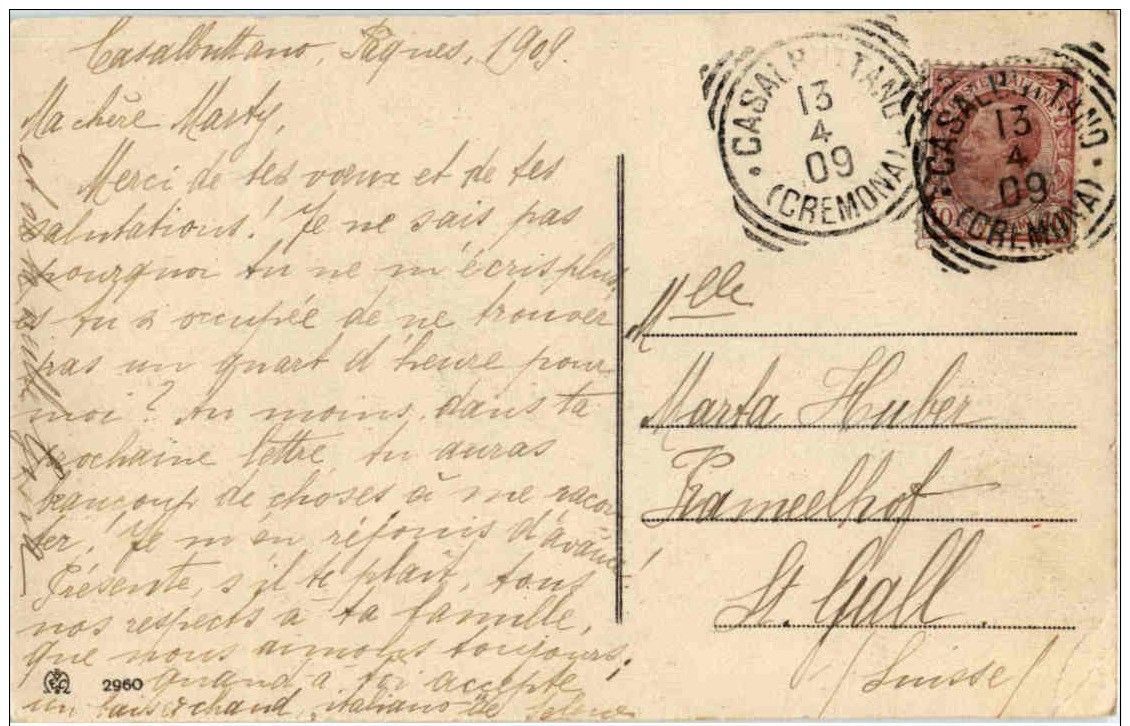 Casalbuttano, Pâques, 1909.
Ma chère Marty,
Merci de tes vœux et de tes
salutations! Je ne sais pas
pourquoi tu ne m'écris plus,
es tu si occupée de ne trouver
pas un quart d'heure pour
moi? Au moins, dans ta
prochaine lettre, tu auras
beaucoup de choses à me racon-
ter! Je m'en réjouis d'avance!
Présente, s'il te plaît, tous
nos respects à ta famille,
que nous aimons toujours,
quand à toi accepte
un baiser chaud, italiano de
et
2960
CASALBUTTANO
(CREMONA)
13
4
09
CASALBUTTANO
(CREMONA)
13
4
09
Mlle
Marta Huber
Kameelhof
St. Gall.
(Suisse)